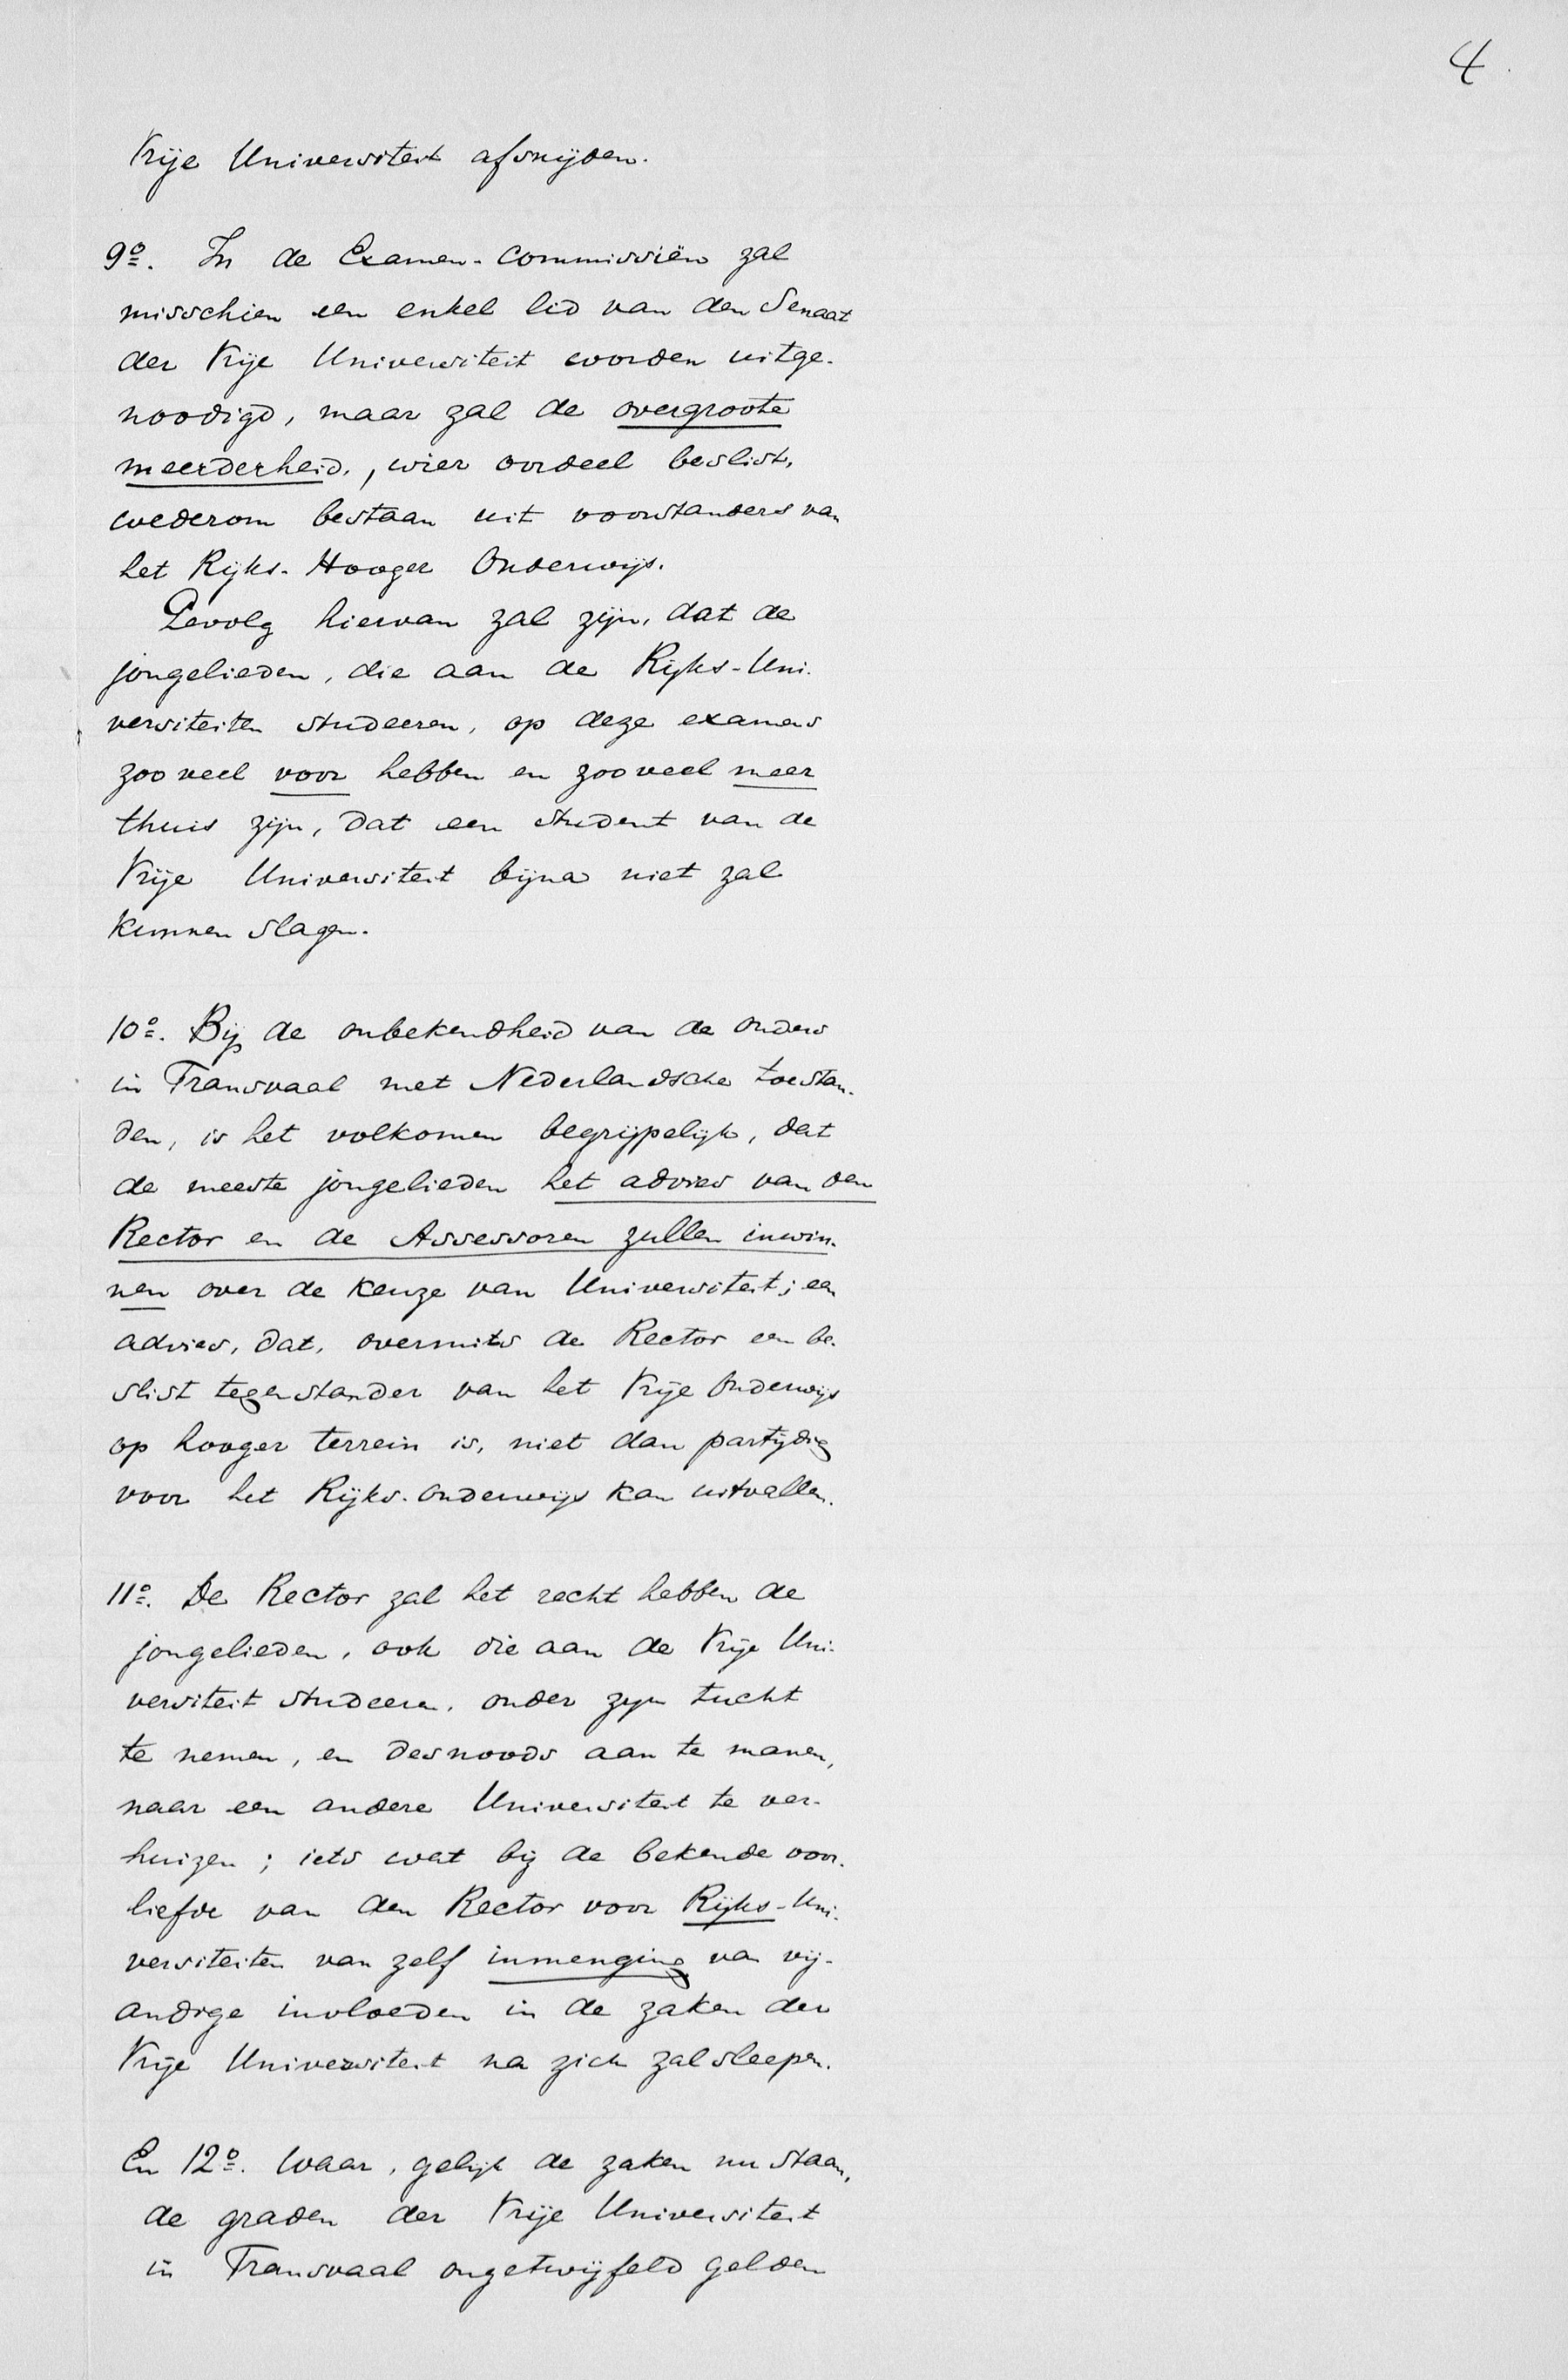 4
Vrije Universiteit afsnijden.
9º. In de Examen-commissiën zal
misschien een enkel lid van den Senaat
der Vrije Universiteit worden uitge-
noodigd, maar zal de overgroote
meerderheid, wier oordeel beslist,
wederom bestaan uit voorstanders van
het Rijks-Hooger Onderwijs.
Gevolg hiervan zal zijn, dat de
jongelieden, die aan de Rijks-Uni-
versiteiten studeeren, op deze examens
zooveel voor hebben en zooveel meer
thuis zijn, dat een student van de
Vrije Universiteit bijna niet zal
kunnen slagen.
10º. Bij de onbekendheid van de ouders
in Transvaal met Nederlandsche toestan-
den, is het volkomen begrijpelijk, dat
de meeste jongelieden het advies van den
Rector en de Assessoren zullen inwin-
nen over de keuze van Universiteit; een
advies, dat, overmits de Rector een be-
slist tegenstander van het Vrije Onderwijs
op hooger terrein is, niet dan partijdig
voor het Rijks-onderwijs kan uitvallen.
11º. De Rector zal het recht hebben de
jongelieden, ook die aan de Vrije Uni-
versiteit studeeren, onder zijn tucht
te nemen, en desnoods aan te manen,
naar een andere Universiteit te ver-
huizen; iets wat bij de bekende voor-
liefde van den Rector voor Rijks-Uni-
versiteiten van zelf inmenging van vij-
andige invloeden in de zaken der
Vrije Universiteit na zich zal sleepen.
En 12º. Waar, gelijk de zaken nu staan,
de graden der Vrije Universiteit
in Transvaal ongetwijfeld gelden